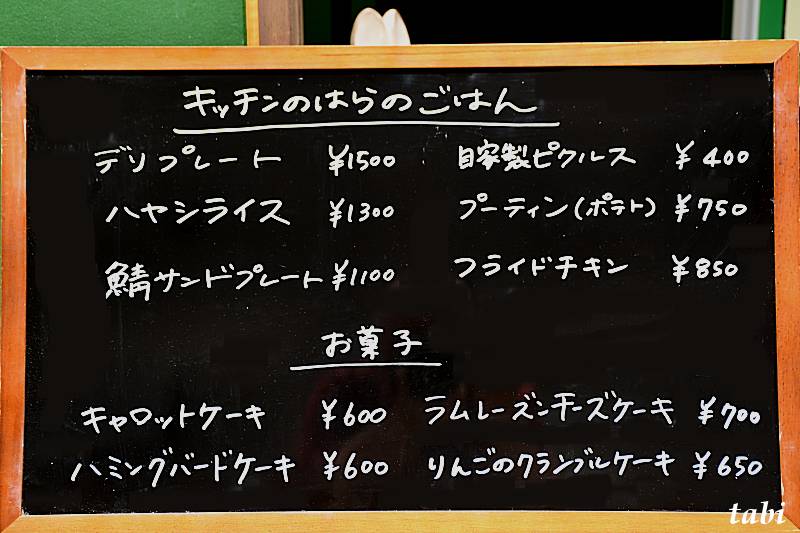 キッチンのはらのごはん
デリプレート ¥1500 自家製ピクルス ¥400
ハヤシライス ¥1300 プーティン(ポテト) ¥750
鯖サンドプレート ¥1100 フライドチキン ¥850
お菓子
キャロットケーキ ¥600 ラムレーズンチーズケーキ ¥700
ハミングバードケーキ ¥600 りんごのクランブルケーキ ¥650
tabi